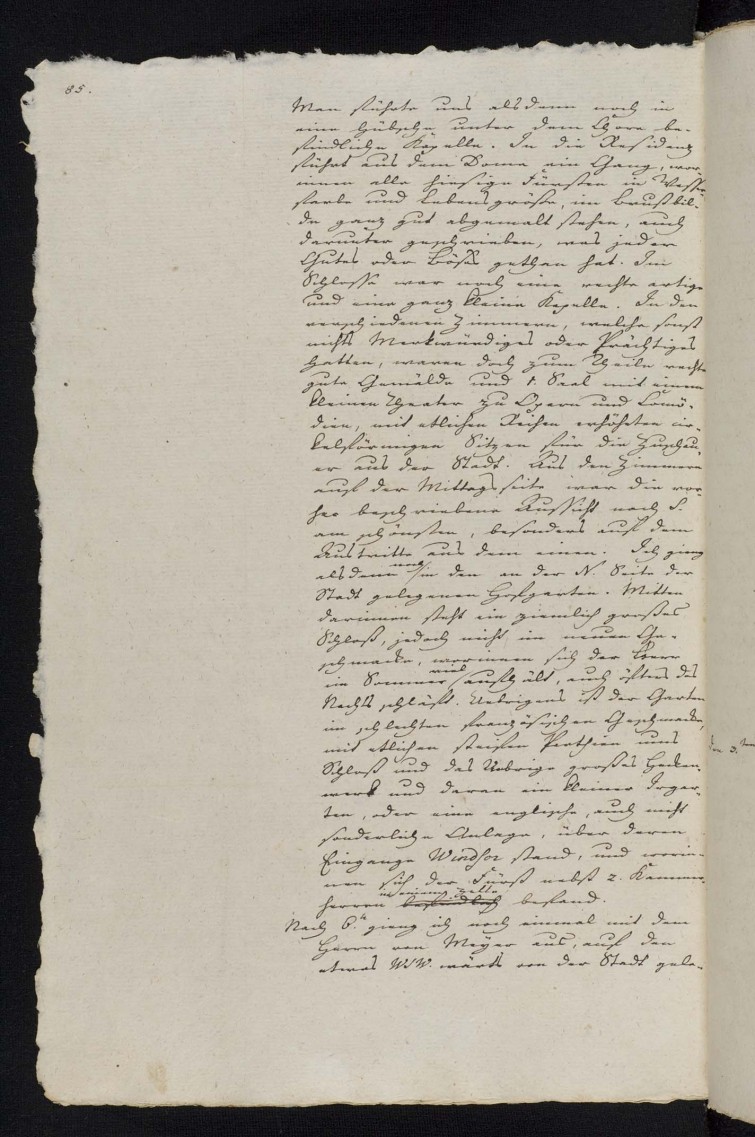 85.
Man führte uns alsdenn noch in
eine hübsche unter dem Chore be-
findliche Kapelle. In die Residenz
führt aus dem Dome ein Gang, wor-
innen alle hiesige Fürsten in Wasser-
farbe und Lebensgröße, im Brustbil-
de ganz gut abgemalt stehen, auch
darunter geschrieben, was jeder
Gutes oder Böses gethan hat. Im
Schlosse war noch eine rechte artige
und eine ganz kleine Kapelle. In den
verschiedenen Zimmern, welche sonst
nichts Merkwürdiges oder Prächtiges
hatten, waren doch zum Theile recht
gute Gemälde und 1. Saal mit einem
kleinen Theater zu Opern und Comö-
dien, mit etlichen Reihen erhöheten cir-
kelförmigen Sitzen für die Zuschau-
er aus der Stadt. Aus den Zimmern
auf der Mittagsseite war die vor-
her beschriebene Aussicht nach S.
am schönsten, besonders auf dem
Austritte aus dem einen. Ich gieng
alsdenn noch in den an der N. Seite der
Stadt gelegenen Hofgarten. Mitten
darinnen steht ein ziemlich großes
Schloß, jedoch nicht im neuen Ge-
schmacke, worinnen sich der Herr
im Sommer viel aufhält, auch öfters des
Nachts schläft. Uebrigens ist der Garten
im schlechten französischen Geschmacke,
mit etlichen steifen Parthien ums
Schloß und das Uebrige großes Hecken-
werk und daran ein kleiner Irrgar-
ten, oder eine englische, auch nicht
sonderliche Anlage, über deren
Eingange Windsor stand, und worin-
nen sich der Fürst nebst 2. Kammer-
herren in einem Zelte befindlich befand.
Nach 6. gieng ich noch einmal mit dem
Herrn von Meyer aus, auf den
etwas WSW. wärts von der Stadt gele-